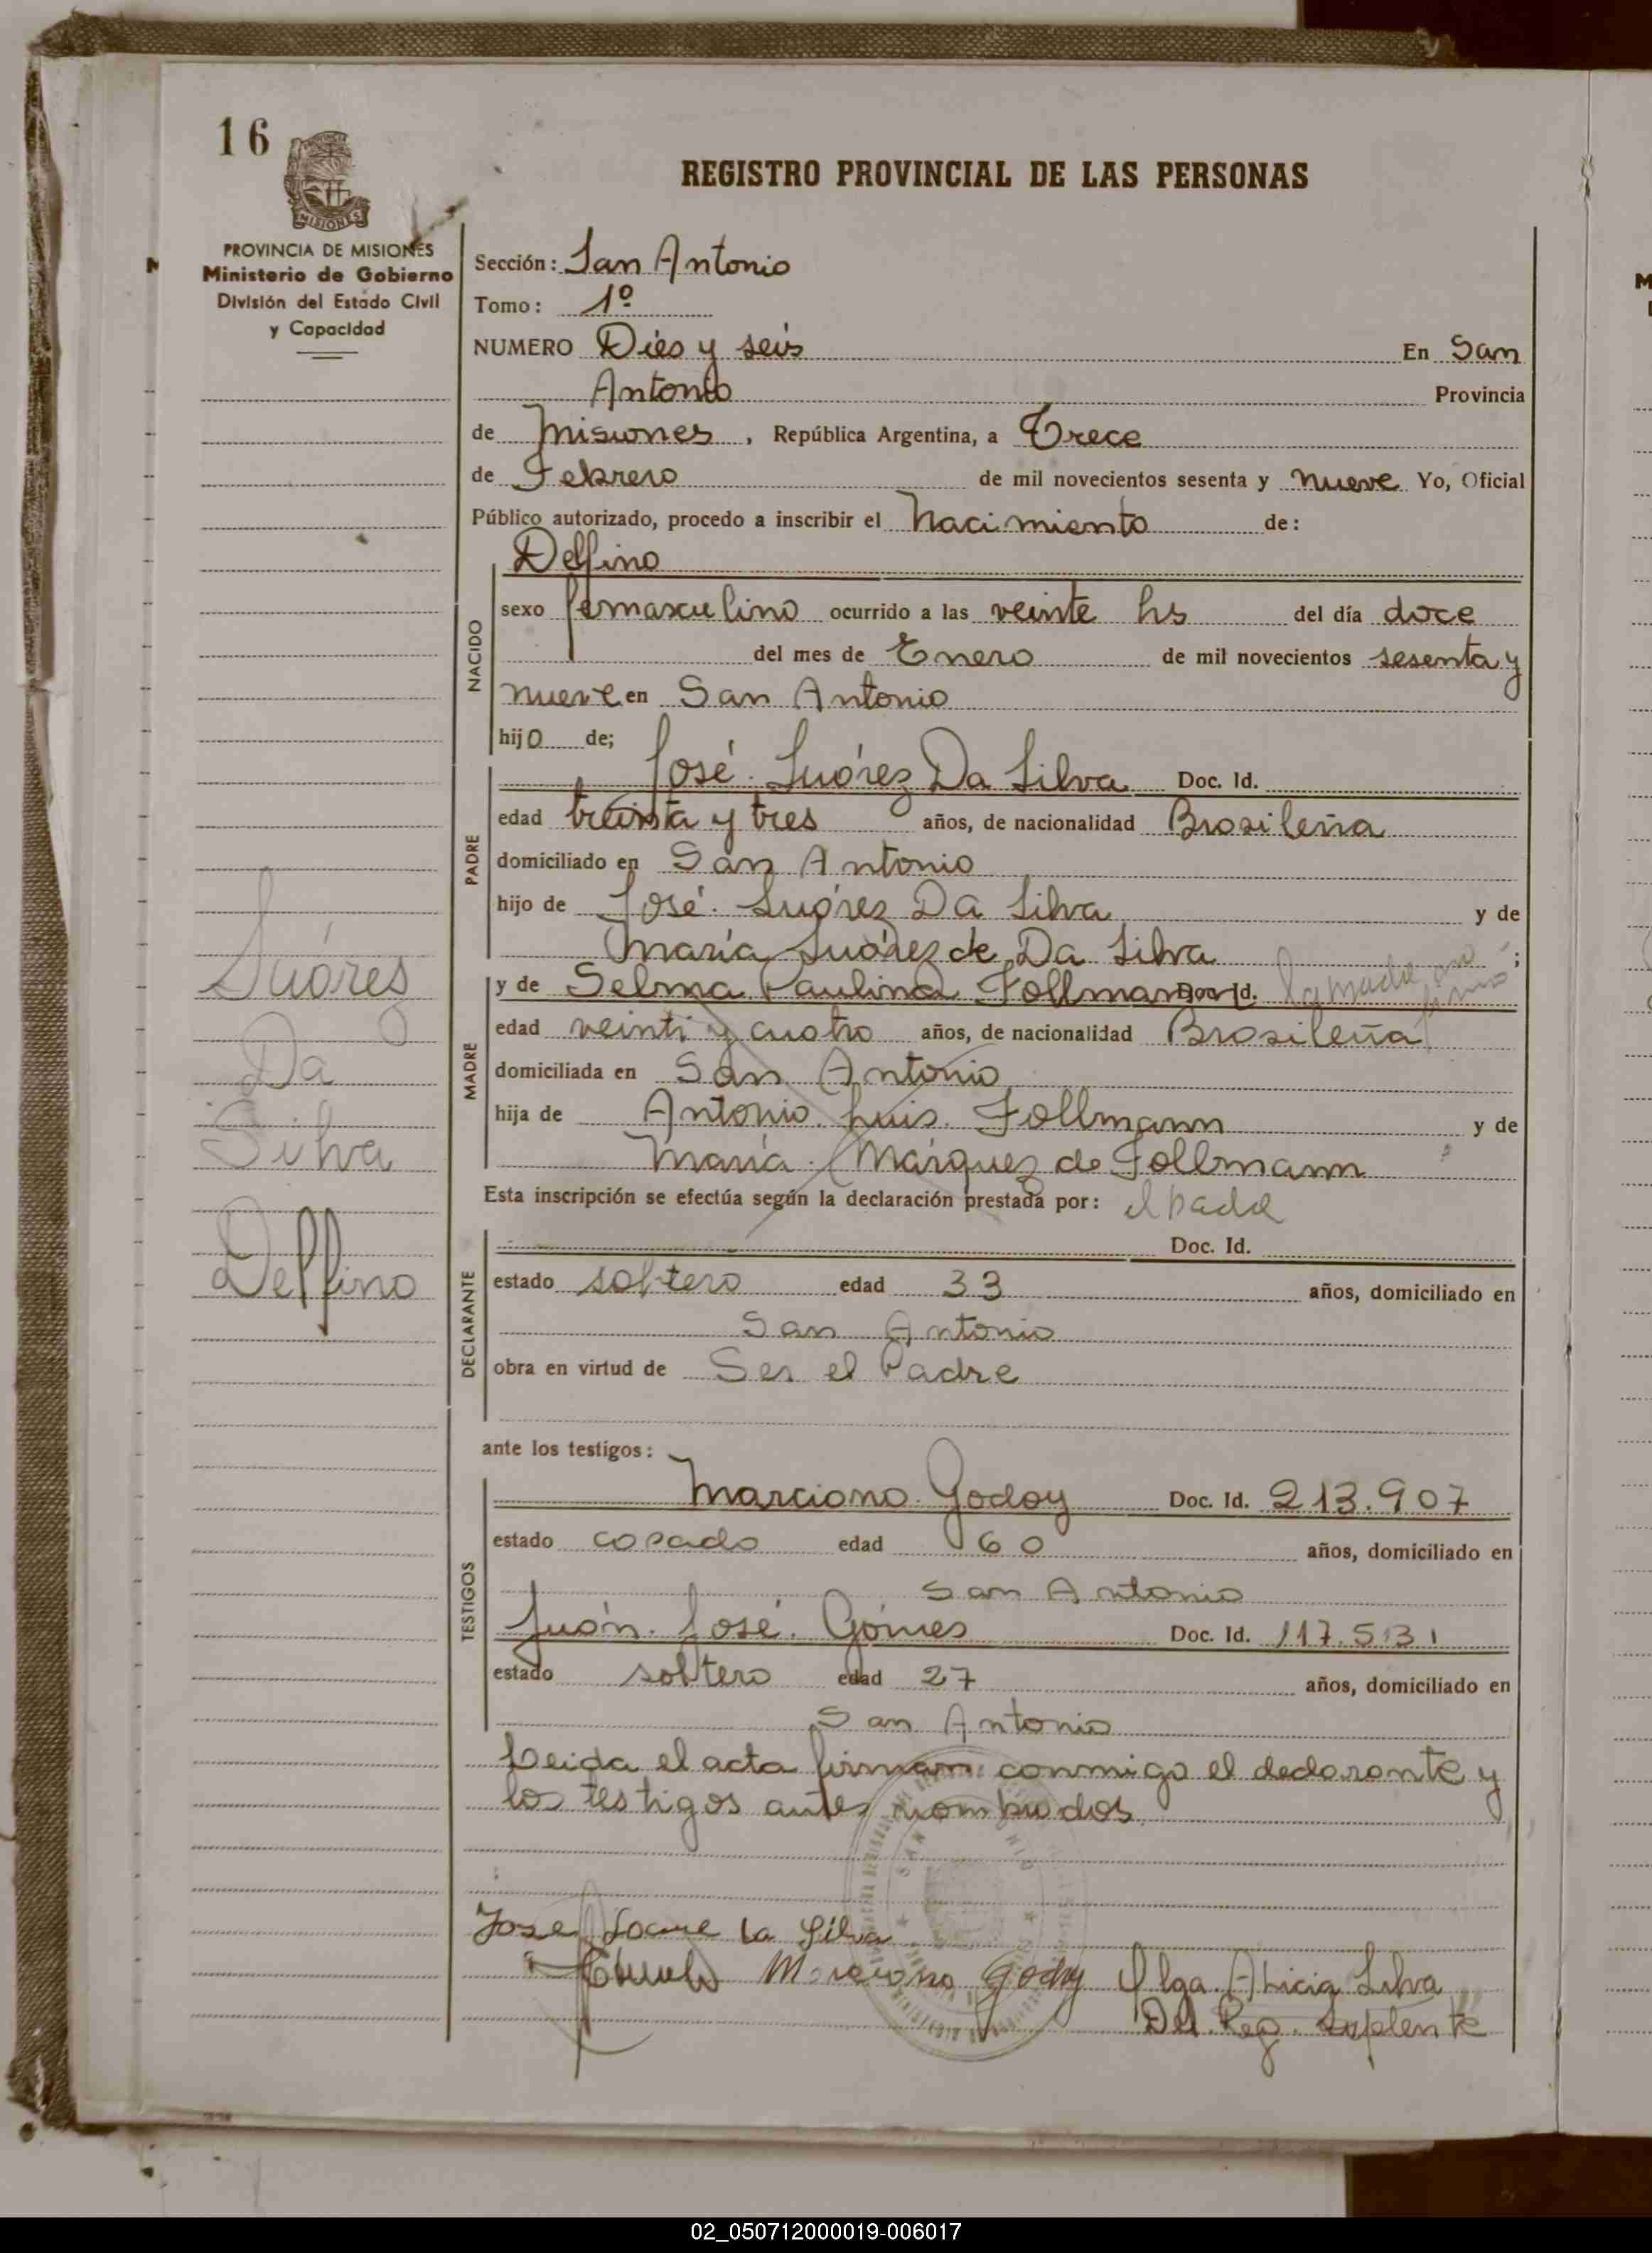 16
MISIONES
PROVINCIA DE MISIONES
Ministerio de Gobierno
División del Estado Civil
y Capacidad
REGISTRO PROVINCIAL DE LAS PERSONAS
Sección: San Antonio
Tomo: 1º
NUMERO Dies y seis En San
Antonio Provincia
de Misiones, República Argentina, a Trece
de Febrero de mil novecientos sesenta y nueve Yo, Oficial
Público autorizado, procedo a inscribir el Nacimiento de:
Delfino
NACIDO
sexo femasculino ocurrido a las veinte hs del día doce
del mes de Enero de mil novecientos sesenta y
nueve en San Antonio
hijo de;
PADRE
José Suárez Da Silva Doc. Id.
edad treinta y tres años, de nacionalidad Brasileña
domiciliado en San Antonio
hijo de José Suárez Da Silva y de
María Suárez de Da Silva ;
MADRE
y de Selma Paulina Follmann Doc. Id. la madre no
firmó
edad veinti y cuatro años, de nacionalidad Brasileña
domiciliada en San Antonio
hija de Antonio Luis Follmann y de
María Márquez de Follmann
Esta inscripción se efectúa según la declaración prestada por: el padre
DECLARANTE
Doc. Id.
estado soltero edad 33 años, domiciliado en
San Antonio
obra en virtud de Ser el Padre
ante los testigos:
TESTIGOS
Marciano Godoy Doc. Id. 213.907
estado casado edad 60 años, domiciliado en
San Antonio
Juán José Gómes Doc. Id. 117.531
estado soltero edad 27 años, domiciliado en
San Antonio
Leida el acta firman conmigo el declarante y
los testigos antes nombrados
Suárez
Da
Silva
Delfino
Jose la Silva
Marciano Godoy Olga Alicia Silva
Del. Reg. Suplente
02_050712000019-006017